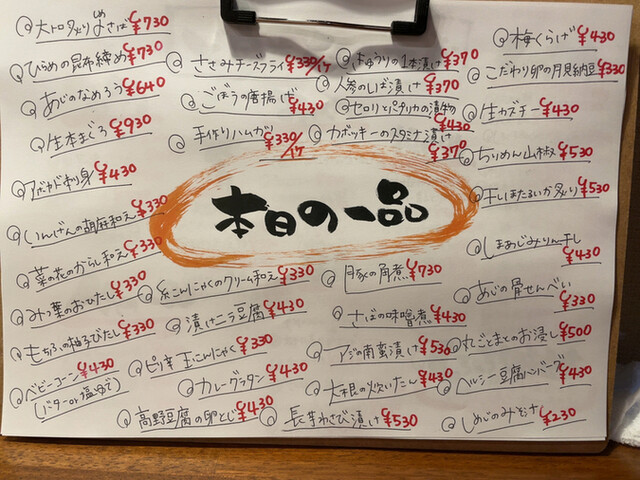 大トロ〆さば ¥730
ひらめの昆布締め ¥730
あじのなめろう ¥640
生本まぐろ ¥930
アボカド刺身 ¥430
いんげんの胡麻和え ¥330
菜の花のからし和え ¥330
みつ葉のおひたし ¥330
もちろこの柚子びたし ¥330
ベビーコーン ¥430
(バターor塩ゆで)
ささみチーズフライ ¥330/1ケ
ごぼうの唐揚げ ¥430
手作りハムカツ ¥330/1ケ
きゅうりの1本漬け ¥370
人参のしば漬け ¥370
セロリとパプリカの漬物 ¥430
カボッキーのスタミナ漬け ¥370
梅くらげ ¥430
こだわり卵の月見納豆 ¥330
生カズチー ¥430
ちりめん山椒 ¥530
干しほたるいか炙り ¥530
しまあじみりん干し ¥430
あじの骨せんべい ¥330
丸ごとまとのお浸し ¥500
ヘルシー豆腐ハンバーグ ¥430
しめじのみぞれ ¥230
本日の一品
糸こんにゃくのクリーム和え ¥330
漬けニラ豆腐 ¥430
ピリ辛玉こんにゃく ¥330
カレーグラタン ¥430
高野豆腐の卵とじ ¥430
豚の角煮 ¥730
さばの味噌煮 ¥430
アジの南蛮漬け ¥530
大根の炊いたん ¥430
長芋わさび漬け ¥530